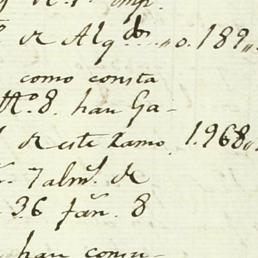 de Alg.dos ..... o. 189,,
como consta
Nº 8. han Ga-
de este Ramo. 1.968,,
7 alms. de
36 fan. 8
han consu-